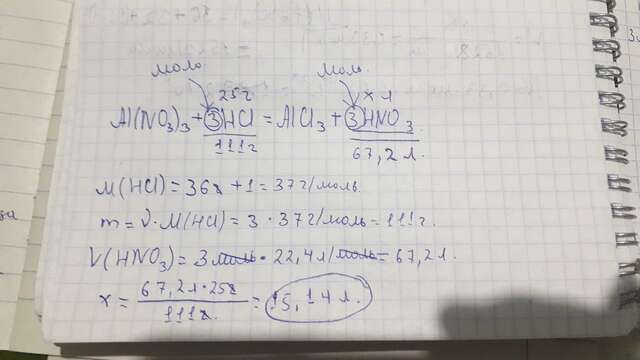 моль моль
25г x л
Al(NO3)3 + 3HCl = AlCl3 + 3HNO3
111г 67,2 л.
M(HCl) = 36 + 1 = 37 г/моль.
m = ν · M(HCl) = 3 · 37 г/моль = 111г.
V(HNO3) = 3 моль · 22,4 л/моль = 67,2 л.
x = 67,2 л · 25г / 111г. = 15,14 л.